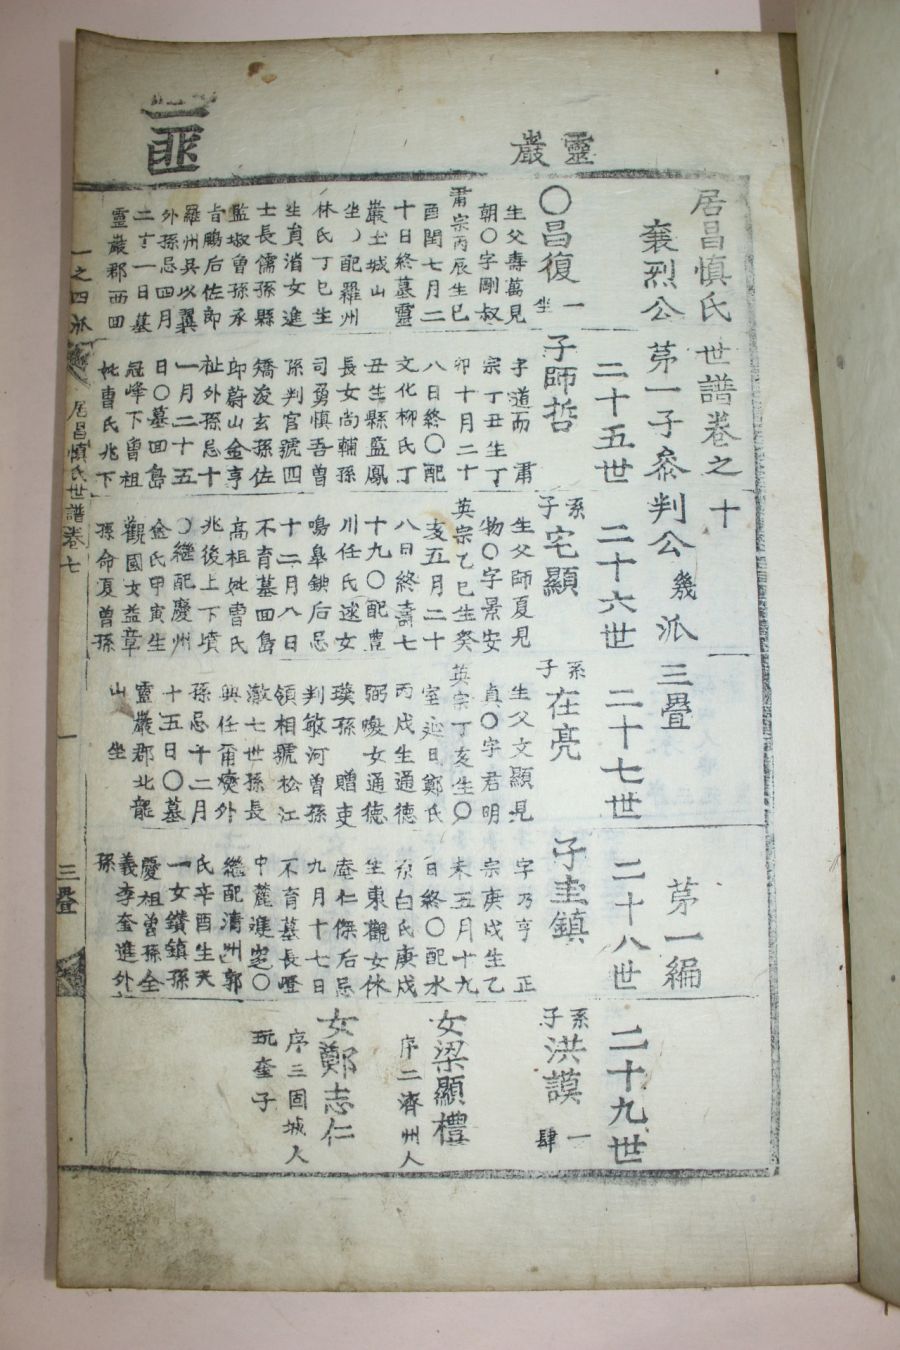 靈巖
居昌愼氏世譜卷之十一
襄烈公第一子叅判公幾派三疊 第一編
二十五世 二十六世 二十七世 二十八世 二十九世
〇昌復 一 坐
生父壽萬見
朝〇字剛叔
肅宗丙辰生己
酉閏七月二
十日終墓靈
巖土城山
坐〇配羅州
林氏丁巳生
生員淯女進
士長儒孫縣
監椒曾孫承
旨鵬后佐郞
羅州吳以翼
外孫忌四月
二十一日墓
靈巖郡西四
子師哲
字道而 肅
宗丁丑生丁
卯十月二十
八日終〇配
文化柳氏丁
丑生縣監鳳
長女尙輔孫
司勇愼吾曾
孫判官號四
矯浚玄孫佐
郞蔚山金亨
祉外孫忌十
一月二十五
日〇墓回島
冠峰下曾祖
妣曺氏兆下
系子宅顯
生父師夏見
物〇字景安
英宗乙巳生癸
亥五月二十
八日終壽七
十九〇配豊
川任氏逑女
鳴皐錪后忌
十二月八日
不育墓回島
高祖妣曺氏
兆後上下墳
〇繼配慶州
金氏甲寅生
觀國女益章
孫命夏曾孫
系子在亮
生父文顯見
眞〇字君明
英宗丁亥生〇
室延日鄭氏
丙戌生通德
弼煥女通德
璞孫 贈吏
判敏河曾孫
領相號松江
澈七世孫長
興任爾㷞外
孫忌十二月
十五日〇墓
靈巖郡北龍
山 坐
子圭鎭
字乃亨 正
宗庚戌生乙
未五月十九
日終〇配水
原白氏庚戌
生東觀女休
庵仁傑后忌
九月十七日
不育墓長嶝
中麓進窆〇
繼配淸州郭
氏辛酉生天
一女鑽鎭孫
慶祖曾孫全
義李奎進外
孫
系子洪謨 一 肆
女梁顯禮
序二濟州人
女鄭志仁
序三固城人
玩奎子
一之四派 居昌愼氏世譜卷七 一 三疊